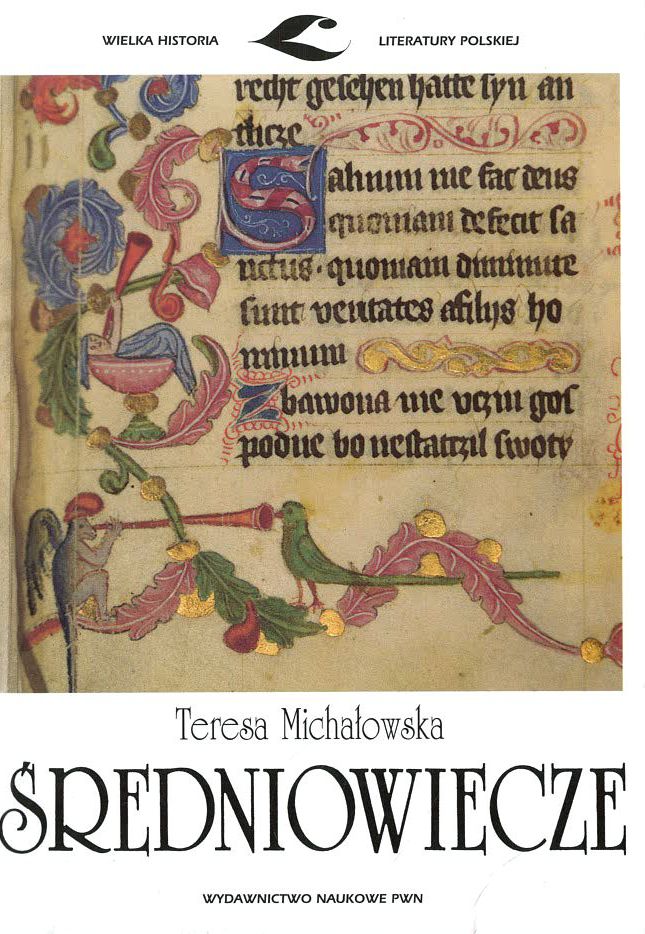 WIELKA HISTORIA LITERATURY POLSKIEJ
recht geschen hatte syn an
dicze
Saluum me fac deus
quoniam defecit sa
nctus · quoniam diminute
sunt veritates a filijs ho
minum
Zbawona me vczin gos
podne bo nestatczil swoty
Teresa Michałowska
ŚREDNIOWIECZE
WYDAWNICTWO NAUKOWE PWN